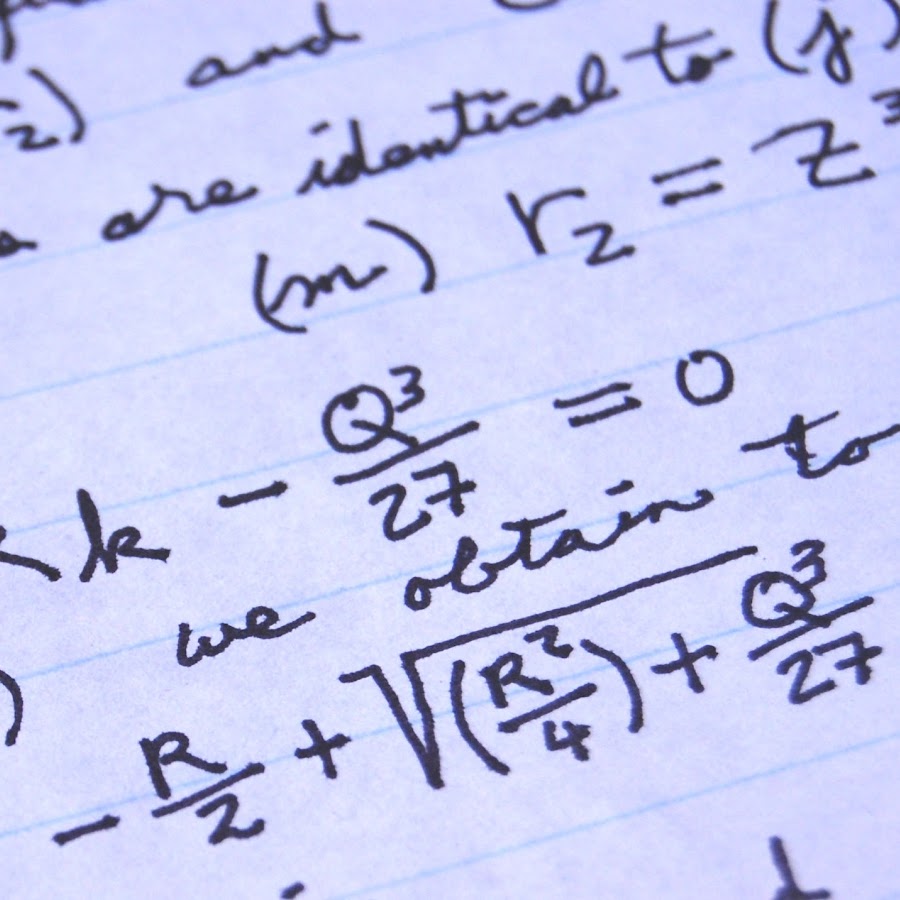 2) and
are identical to (j)
(m) r₂ = z³
k - Q³/27 = 0
we obtain to
- R/2 + √(R²/4) + Q³/27